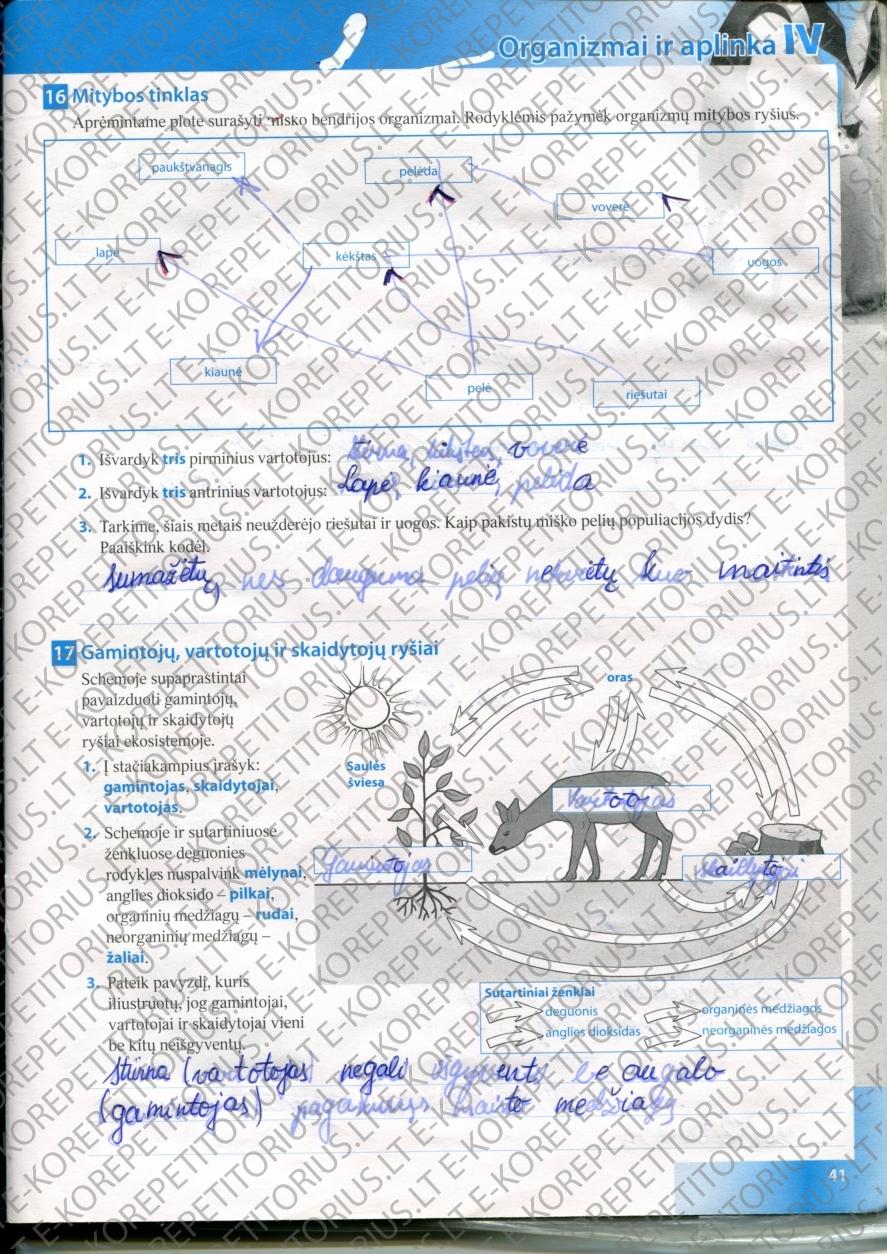 Organizmai ir aplinka IV
16 Mitybos tinklas
Aprėmintame plote surašyti miško bendrijos organizmai. Rodyklėmis pažymėk organizmų mitybos ryšius.
paukštvanagis
pelėda
voverė
lapė
kėkštas
uogos
kiaunė
pelė
riešutai
1. Išvardyk tris pirminius vartotojus: stirna, kėkštas, voverė
2. Išvardyk tris antrinius vartotojus: Lapė, kiaunė, pelėda
3. Tarkime, šiais metais neužderėjo riešutai ir uogos. Kaip pakistų miško pelių populiacijos dydis?
Paaiškink kodėl.
Sumažėtų, nes dauguma pelių neturėtų kuo maitintis
17 Gamintojų, vartotojų ir skaidytojų ryšiai
Schemoje supaprastintai
pavaizduoti gamintojų,
vartotojų ir skaidytojų
ryšiai ekosistemoje.
1. Į stačiakampius įrašyk:
gamintojas, skaidytojai,
vartotojas.
2. Schemoje ir sutartiniuose
ženkluose deguonies
rodykles nuspalvink mėlynai,
anglies dioksido – pilkai,
organinių medžiagų – rudai,
neorganinių medžiagų –
žaliai.
3. Pateik pavyzdį, kuris
iliustruotų, jog gamintojai,
vartotojai ir skaidytojai vieni
be kitų neišgyventų.
oras
Saulės
šviesa
Vartotojas
Gamintojas
skaidytojai
Sutartiniai ženklai
deguonis
organinės medžiagos
anglies dioksidas
neorganinės medžiagos
Stirna (vartotojas) negali išgyventi be augalo
(gamintojas) pagamintų maisto medžiagų
41
E-KOREPETITORIUS.LT